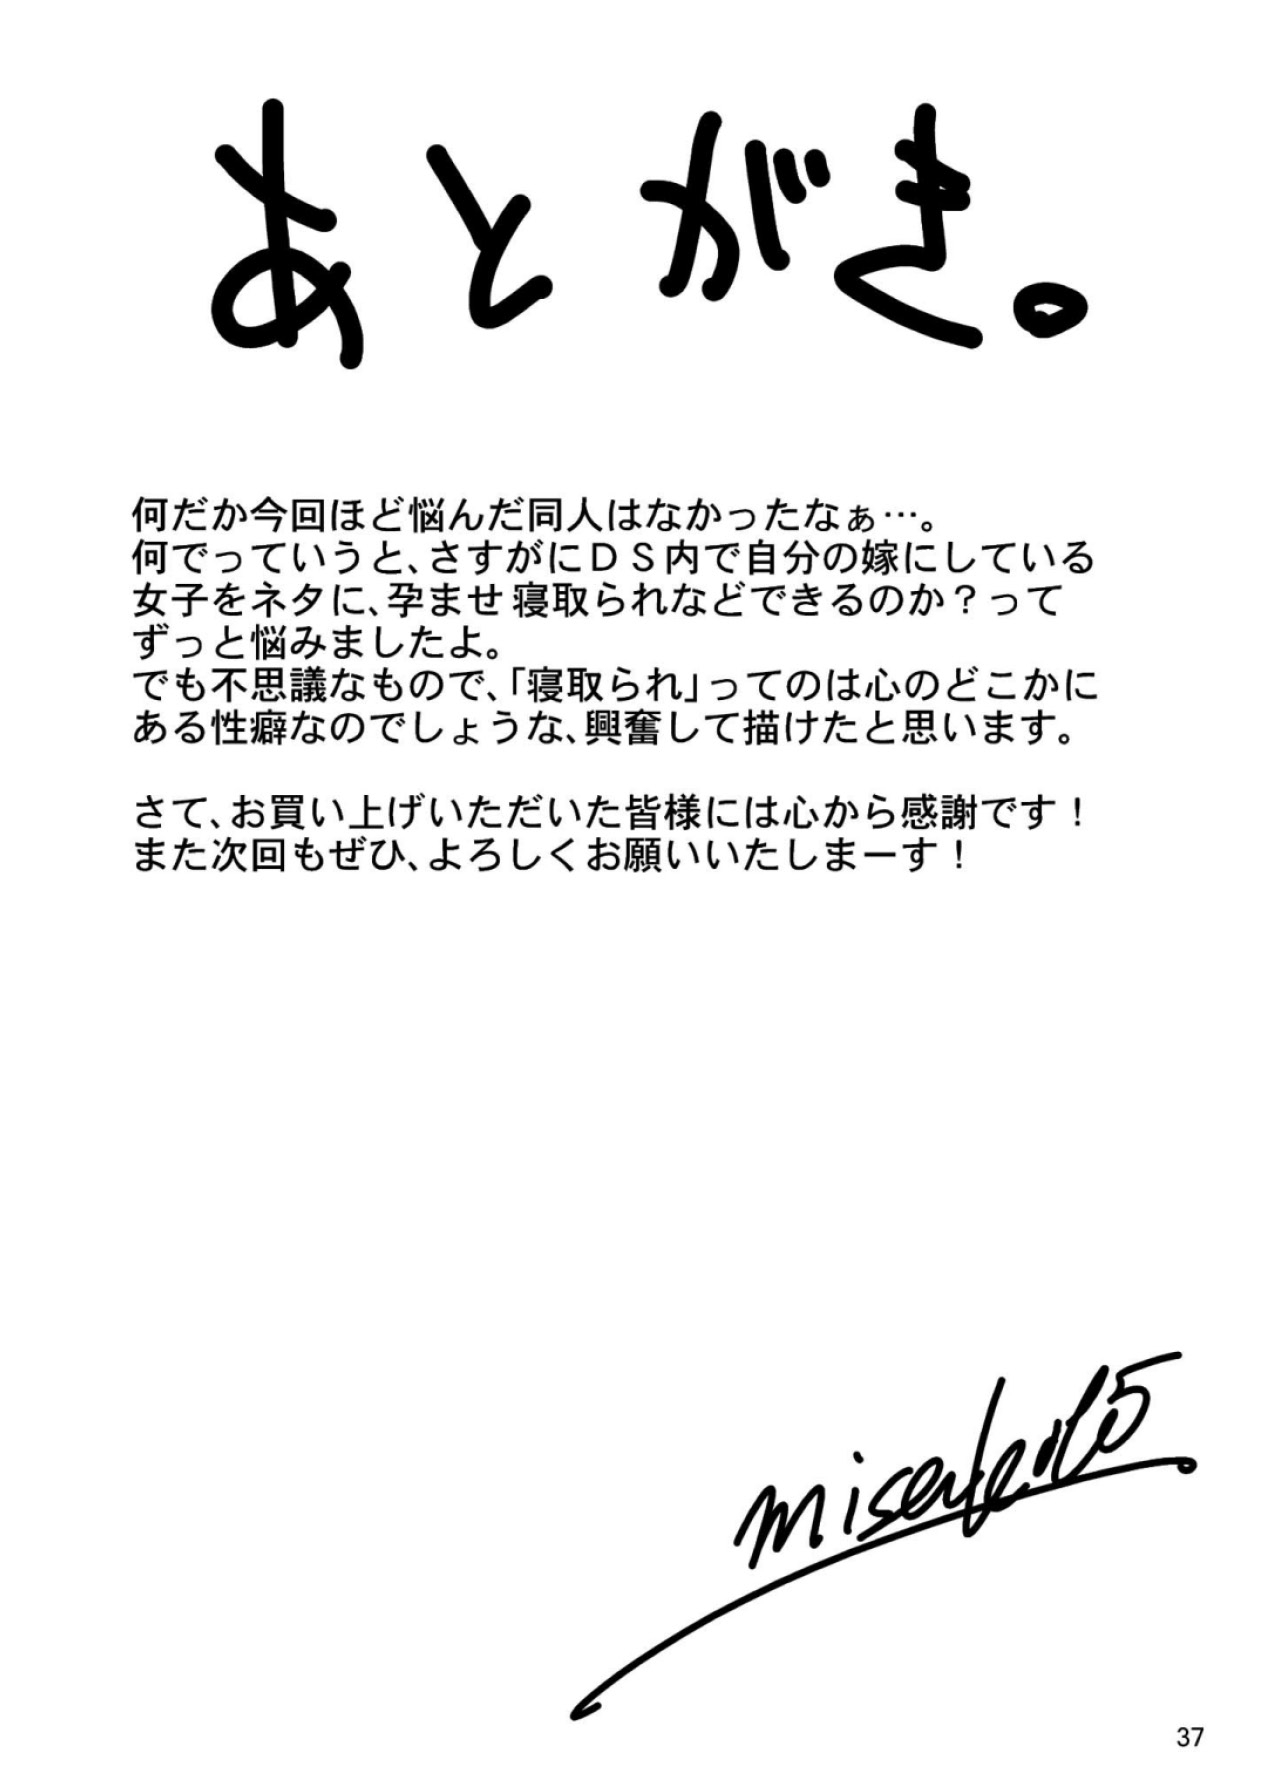 あとがき。
何だか今回ほど悩んだ同人はなかったなぁ…。
何でっていうと、さすがにＤＳ内で自分の嫁にしている
女子をネタに、孕ませ 寝取られなどできるのか？って
ずっと悩みましたよ。
でも不思議なもので、「寝取られ」ってのは心のどこかに
ある性癖なのでしょうな、興奮して描けたと思います。
さて、お買い上げいただいた皆様には心から感謝です！
また次回もぜひ、よろしくお願いいたしまーす！
37